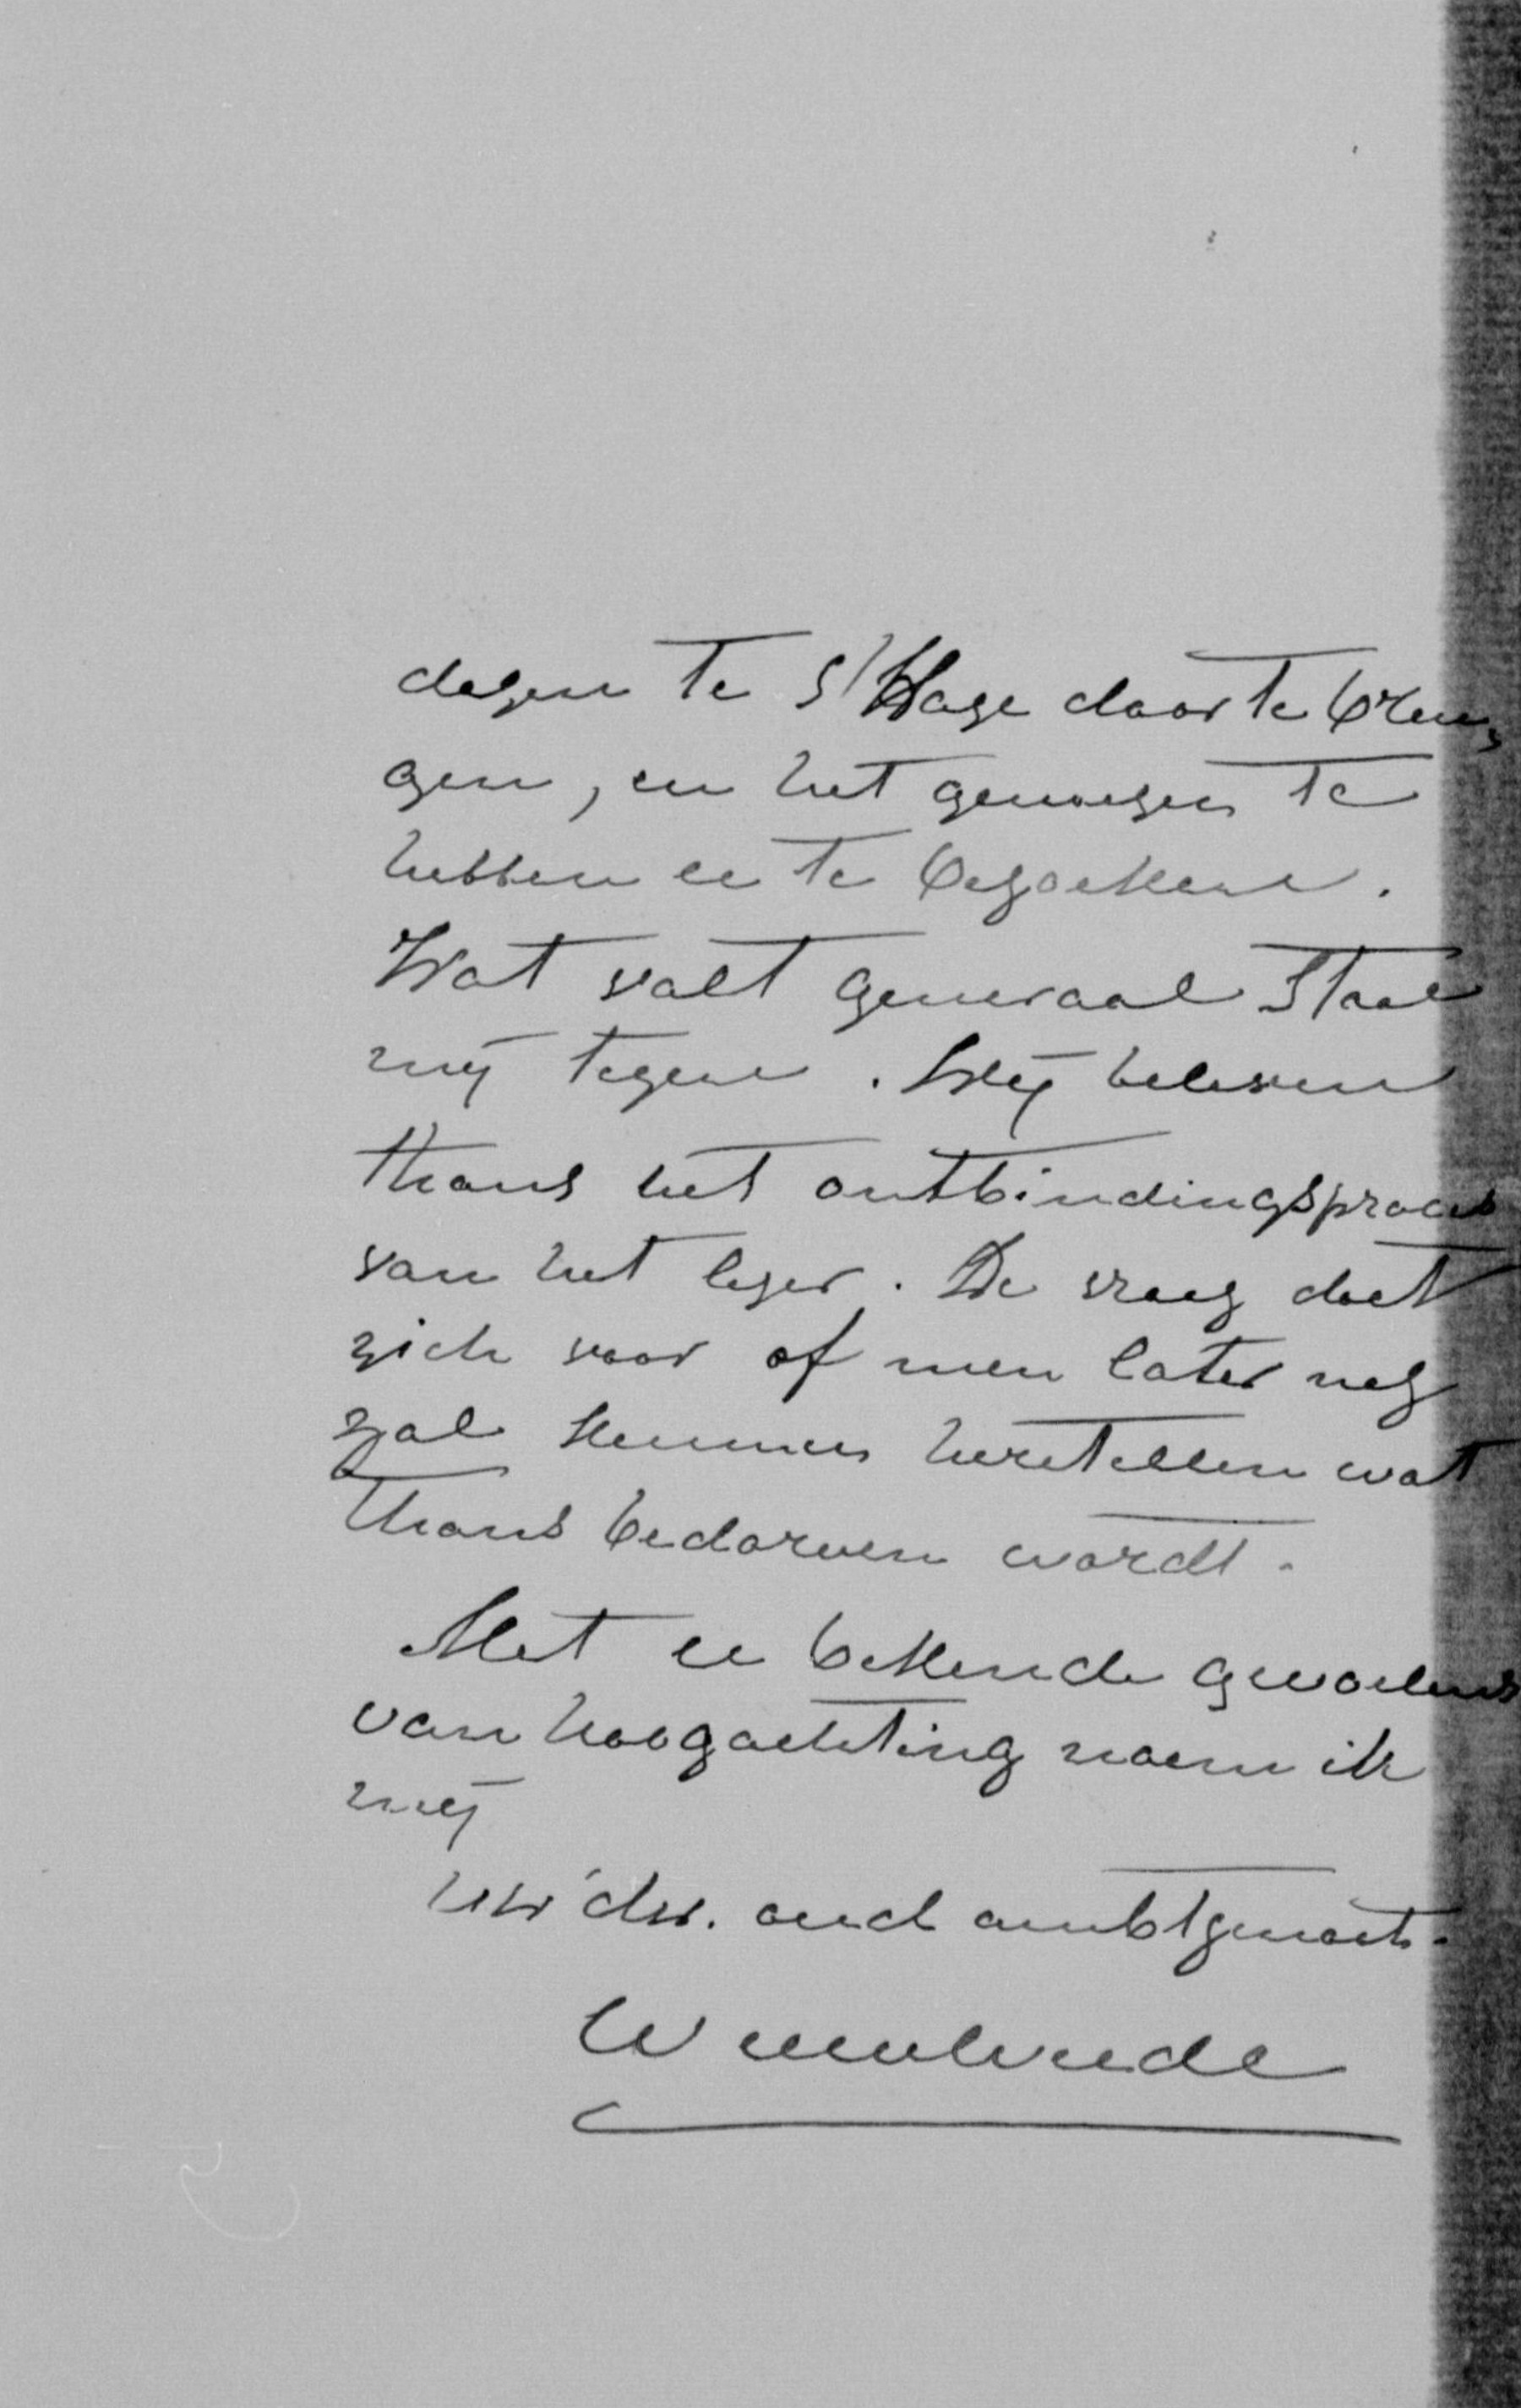 dagen te s'Hage door te bren,
gen, en het genoegen te
hebben u te bezoeken.
Wat valt generaal Staal
mij tegen. Wij beleven
thans het ontbindingsproces
van het leger. De vraag doet
zich voor of men later nog
zal kunnen herstellen wat
thans bedorven wordt.
Met u bekende gevoelens
van hoogachting noem ik
mij
uw dw. oud ambtgenoot.